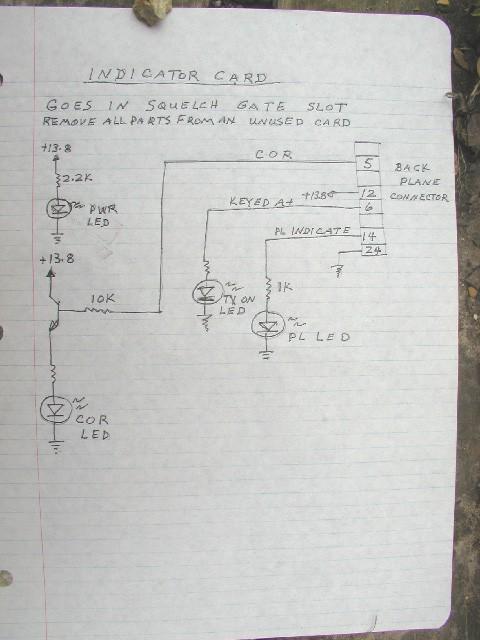 INDICATOR CARD
GOES IN SQUELCH GATE SLOT
REMOVE ALL PARTS FROM AN UNUSED CARD
+13.8
2.2K
PWR
LED
COR
5
BACK
PLANE
CONNECTOR
+13.8
12
KEYED A+
6
PL INDICATE
14
24
+13.8
10K
TX ON
LED
1K
PL LED
COR
LED